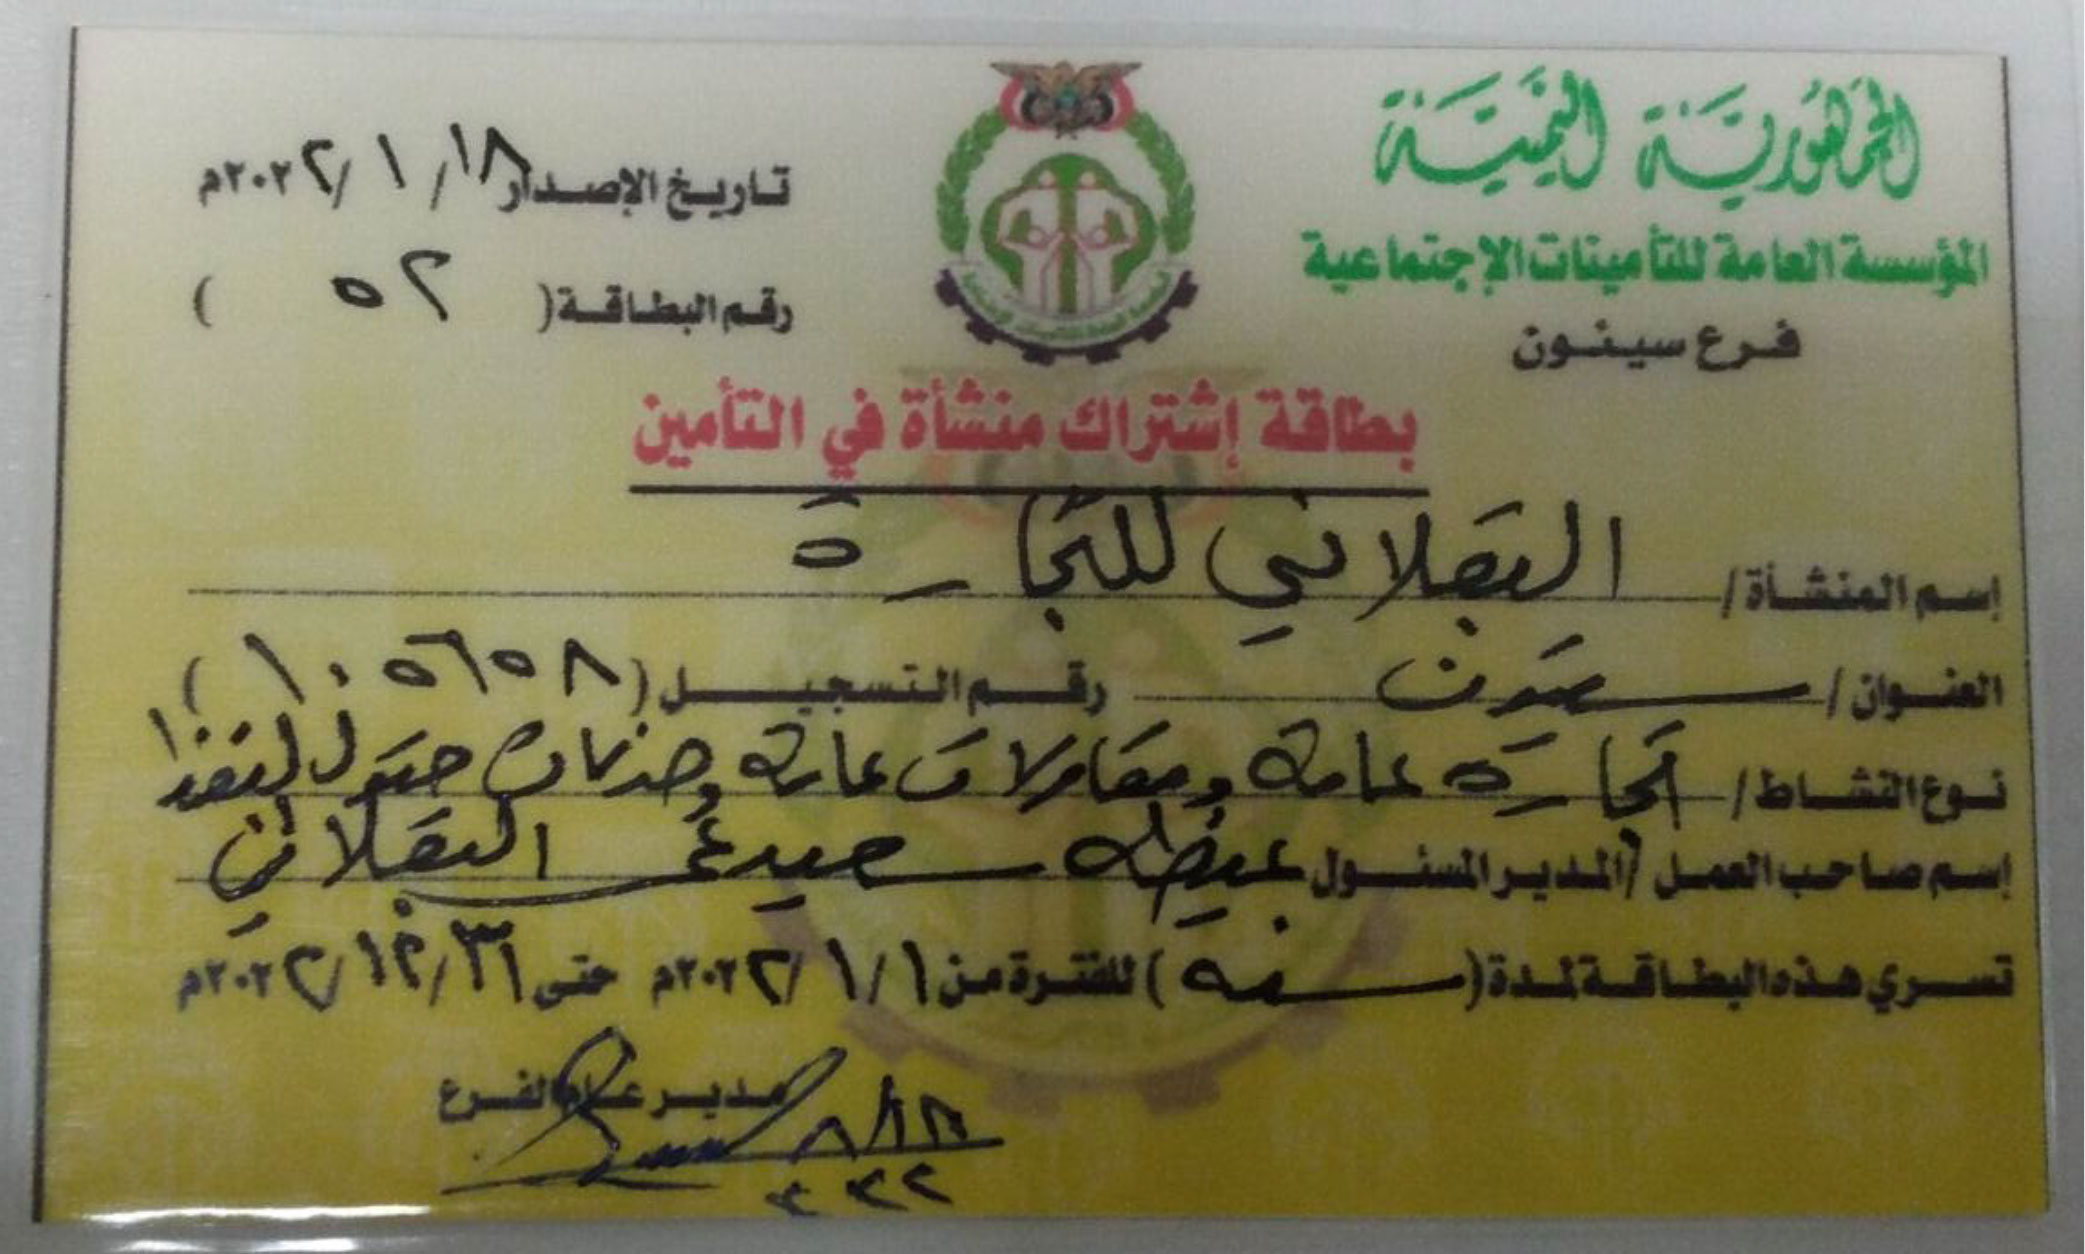 الجمهورية اليمنية
المؤسسة العامة للتأمينات الإجتماعية
فرع سيئون
تاريخ الإصدار ١٨/ ١ /٢٠٢٢م
رقم البطاقة ( ٥٢ )
بطاقة إشتراك منشأة في التأمين
إسم المنشأة / البقلاني للتجارة
العنوان / سيئون رقم التسجيل (١٠٥٦٥٨)
نوع النشاط / تجارة عامة ومقاولات عامة وخدمات حقول النفط
إسم صاحب العمل / المدير المسئول سعيد البقلاني
تسري هذه البطاقة لمدة ( سنه ) للفترة من ١/١/ ٢٠٢٢م حتى ٣١/١٢/ ٢٠٢٢م
مدير عام الفرع